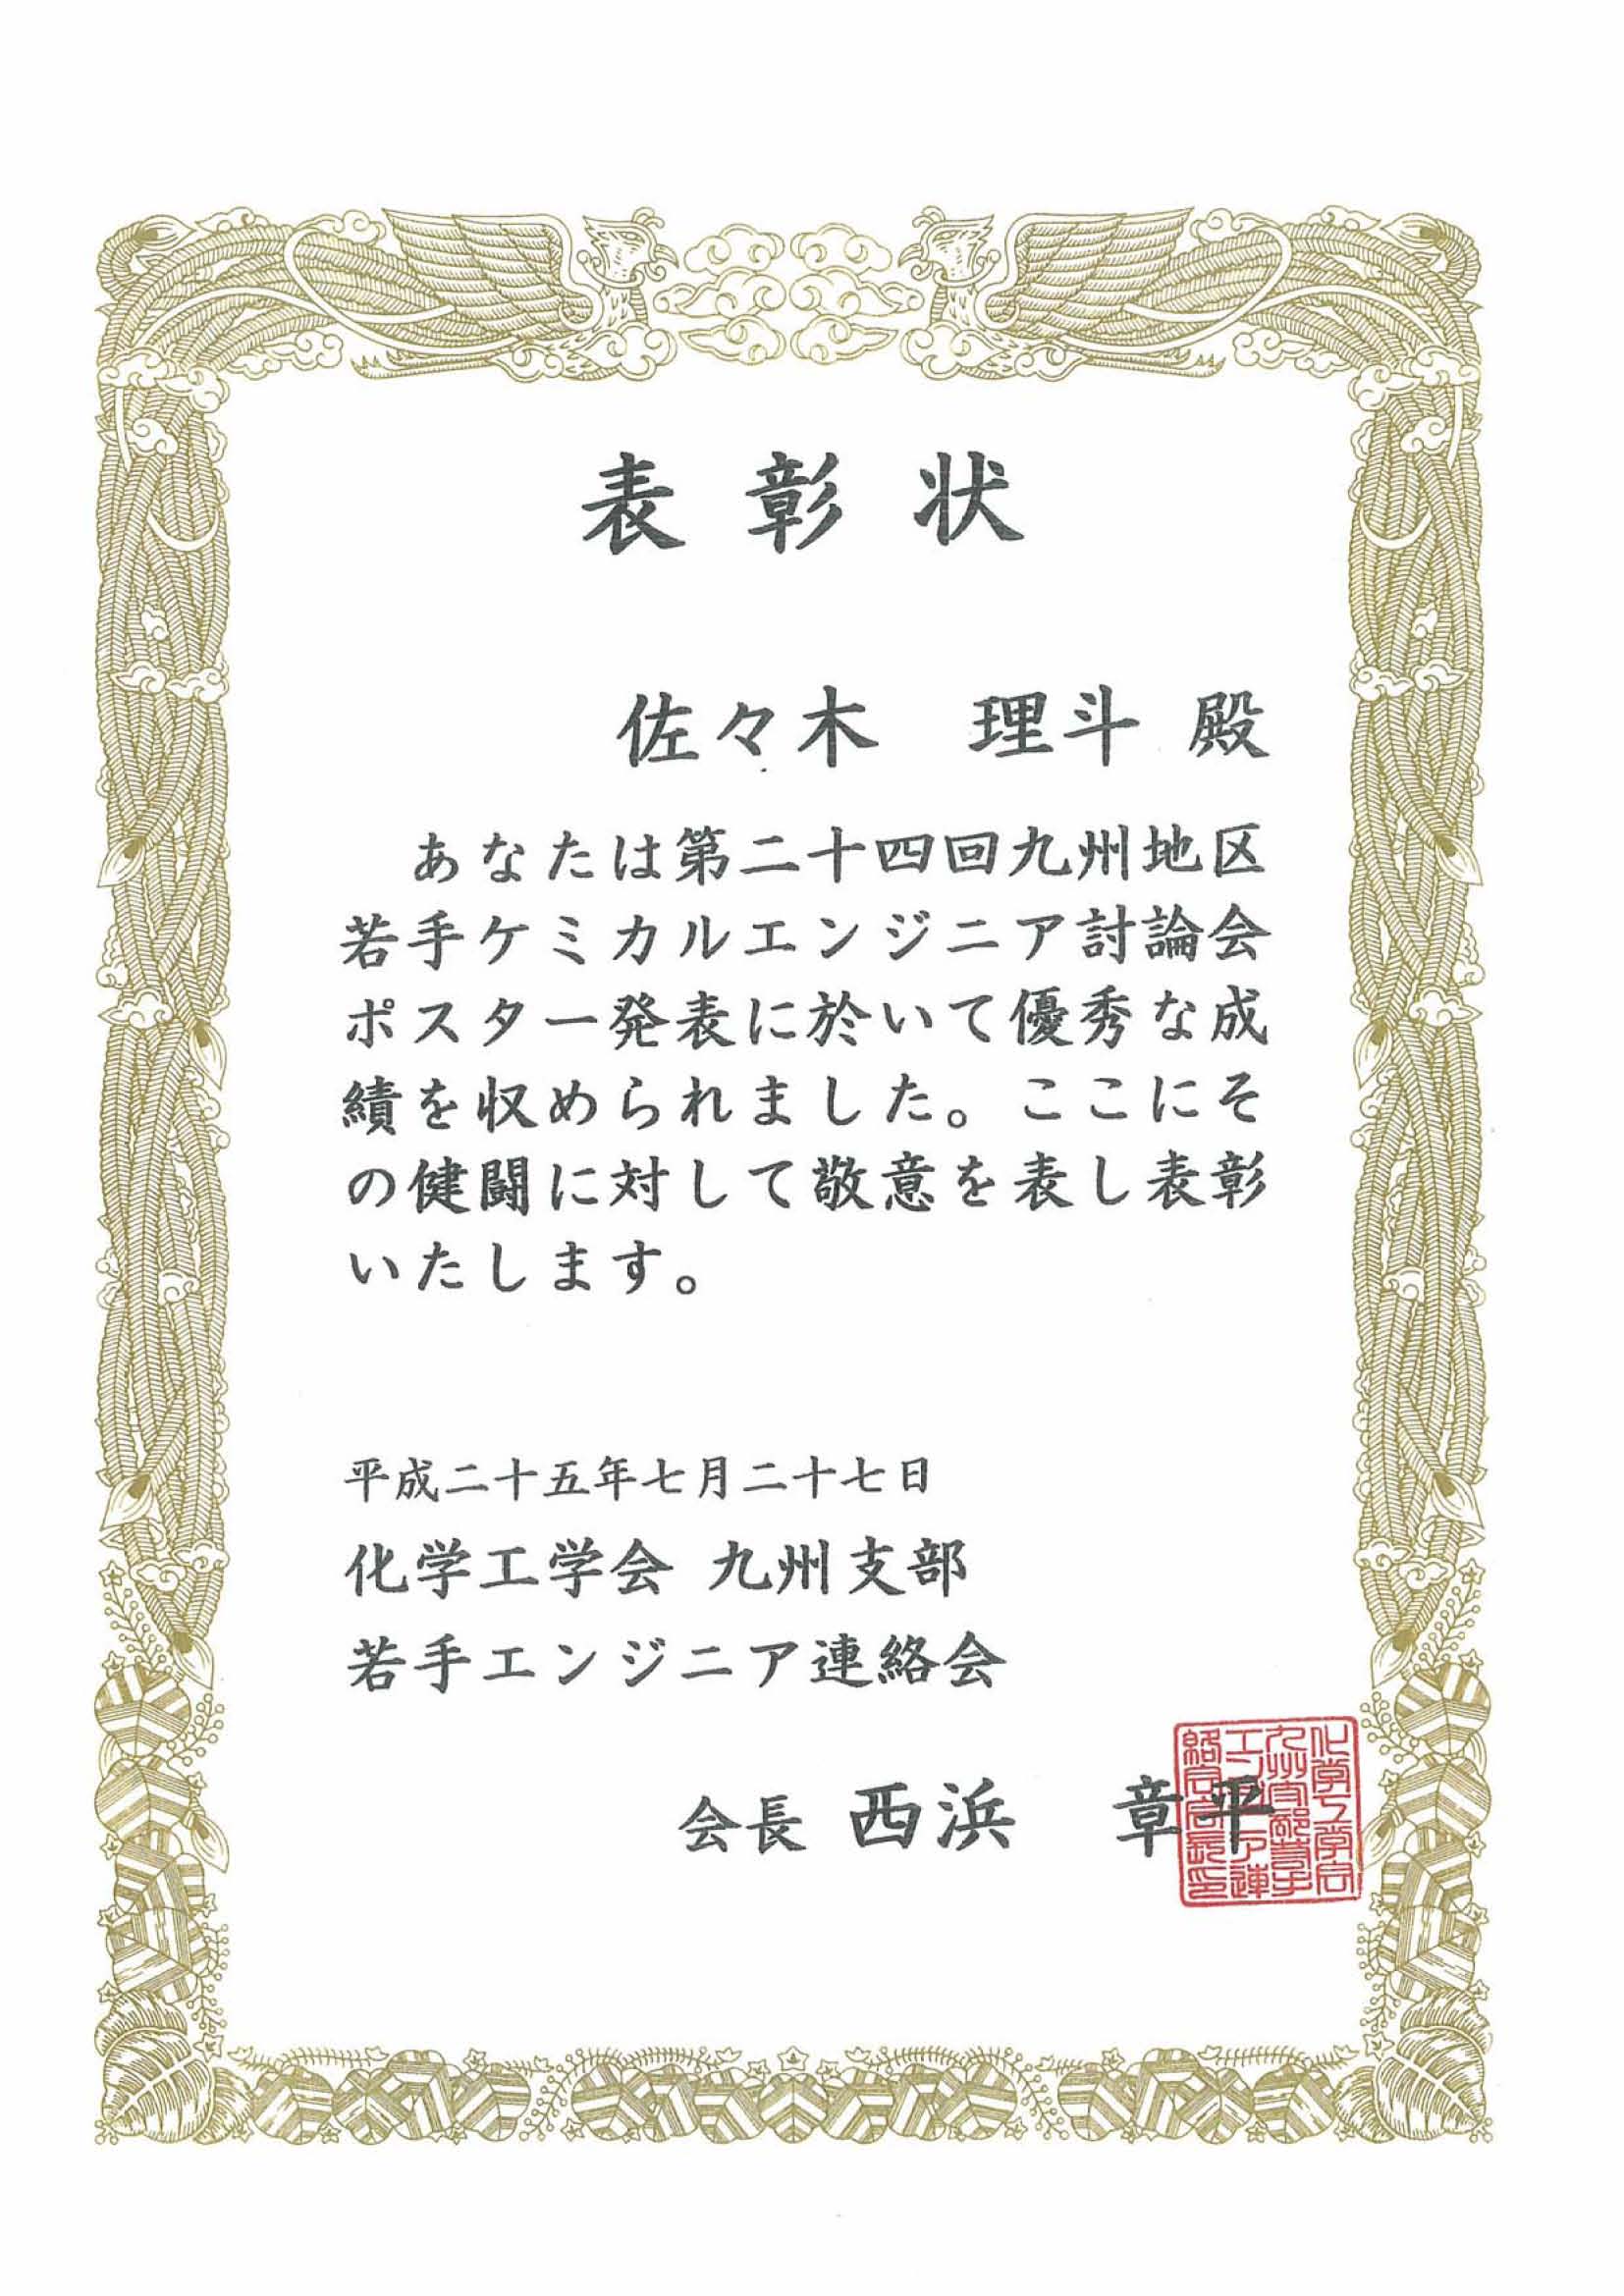 表彰状
佐々木　理斗 殿
あなたは第二十四回九州地区
若手ケミカルエンジニア討論会
ポスター発表に於いて優秀な成
績を収められました。ここにそ
の健闘に対して敬意を表し表彰
いたします。
平成二十五年七月二十七日
化学工学会 九州支部
若手エンジニア連絡会
会長 西浜　章平